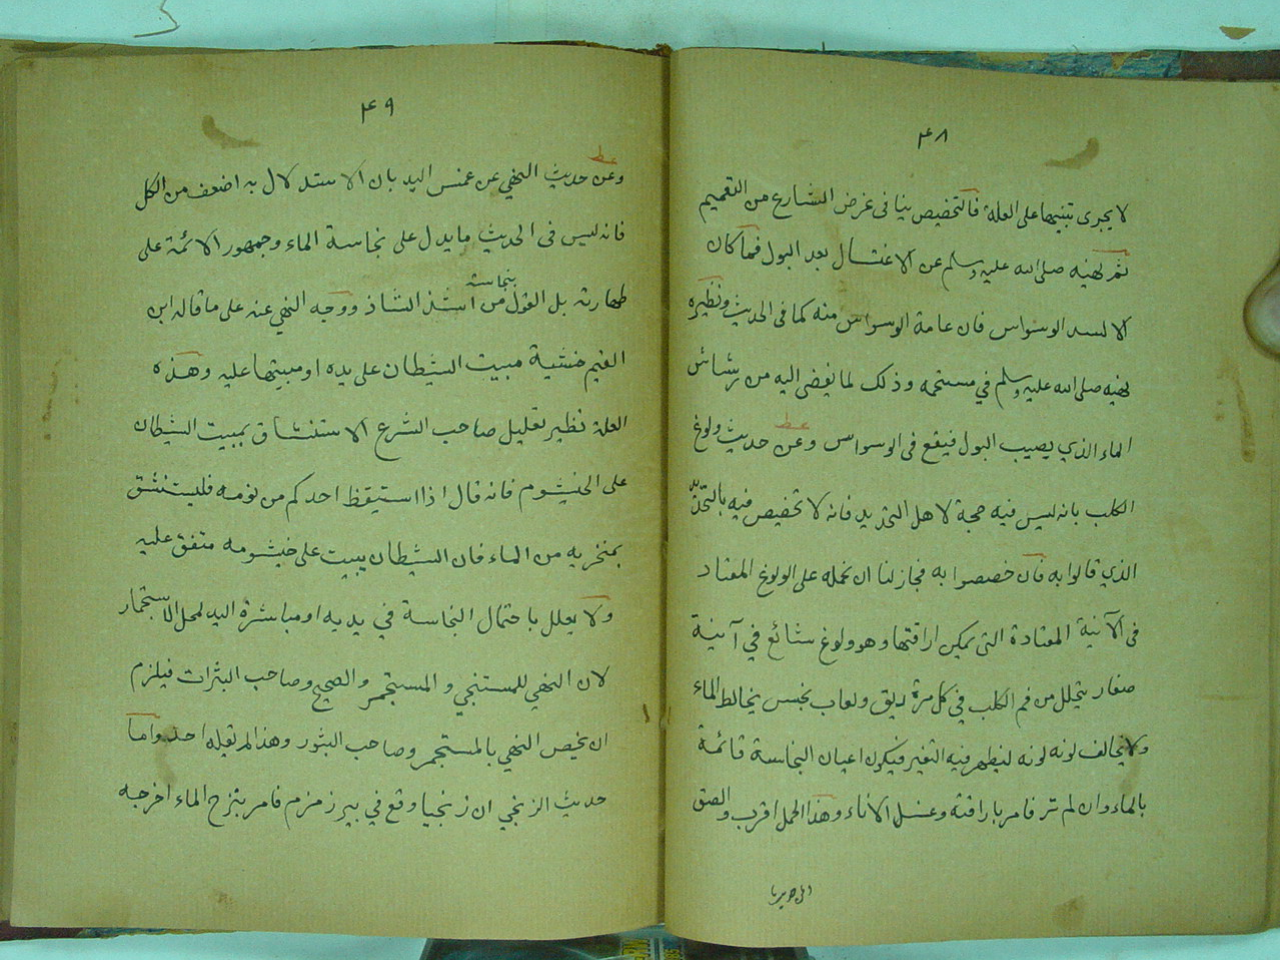 ٤٨
لا يجرى تنبيها على العلة فالتخصيص ينافى غرض الشارع من التعميم
ثم نهيه صلى الله عليه وسلم عن الاغتسال بعد البول فيما كان
الا لسد الوسواس فان عامة الوسواس منه كما فى الحديث ونظيره
نهيه صلى الله عليه وسلم في مستحمه وذلك لما يفضى اليه من رشاش
الماء الذي يصيب البول فيقع فى الوسواس وعن حديث ولوغ
الكلب بانه ليس فيه حجة لاهل التحديد فانه لا تخصيص فيه
الذي قالوا به فان خصصوا به فجاز لنا ان نحمله على الولوغ المعتاد
فى الآنية المعتادة التى يمكن اراقتها وهو ولوغ شائع في آنية
صغار يتحلل من فم الكلب في كل مرة ريق ولعاب نجس يخالط الماء
ولا يخالف لونه لونه ليظهر فيه التغير فيكون اعيان النجاسة قائمة
بالماء وان لم تر فامر باراقته وغسل الاناء وهذا الحمل اقرب والصق
٤٩
عط
وعن حديث النهي عن غمس اليد بان الاستدلال به اضعف من الكل
فانه ليس فى الحديث ما يدل على نجاسة الماء وجمهور الائمة على
طهارته بل القول بنجاسته من اشذ الشاذ ووجه النهي عنه على ما قاله ابن
القيم خشية مبيت الشيطان على يده او مبيتها عليه وهذه
العلة نظير تعليل صاحب الشرع الاستنشاق بمبيت الشيطان
على الخيشوم فانه قال اذا استيقظ احدكم من نومه فليستنشق
بمنخريه من الماء فان الشيطان يبيت على خيشومه متفق عليه
ولا يعلل باحتمال النجاسة في يديه او مباشرة اليد لمحل الاستجمار
لان النهي للمستنجي و المستجمر والصحيح وصاحب البثرات فيلزم
ان يخص النهي بالمستجمر وصاحب البثور وهذا لم يقله احد واما
حديث الزنجي ان زنجيا وقع في بير زمزم فامر بنزح الماء اخرجه